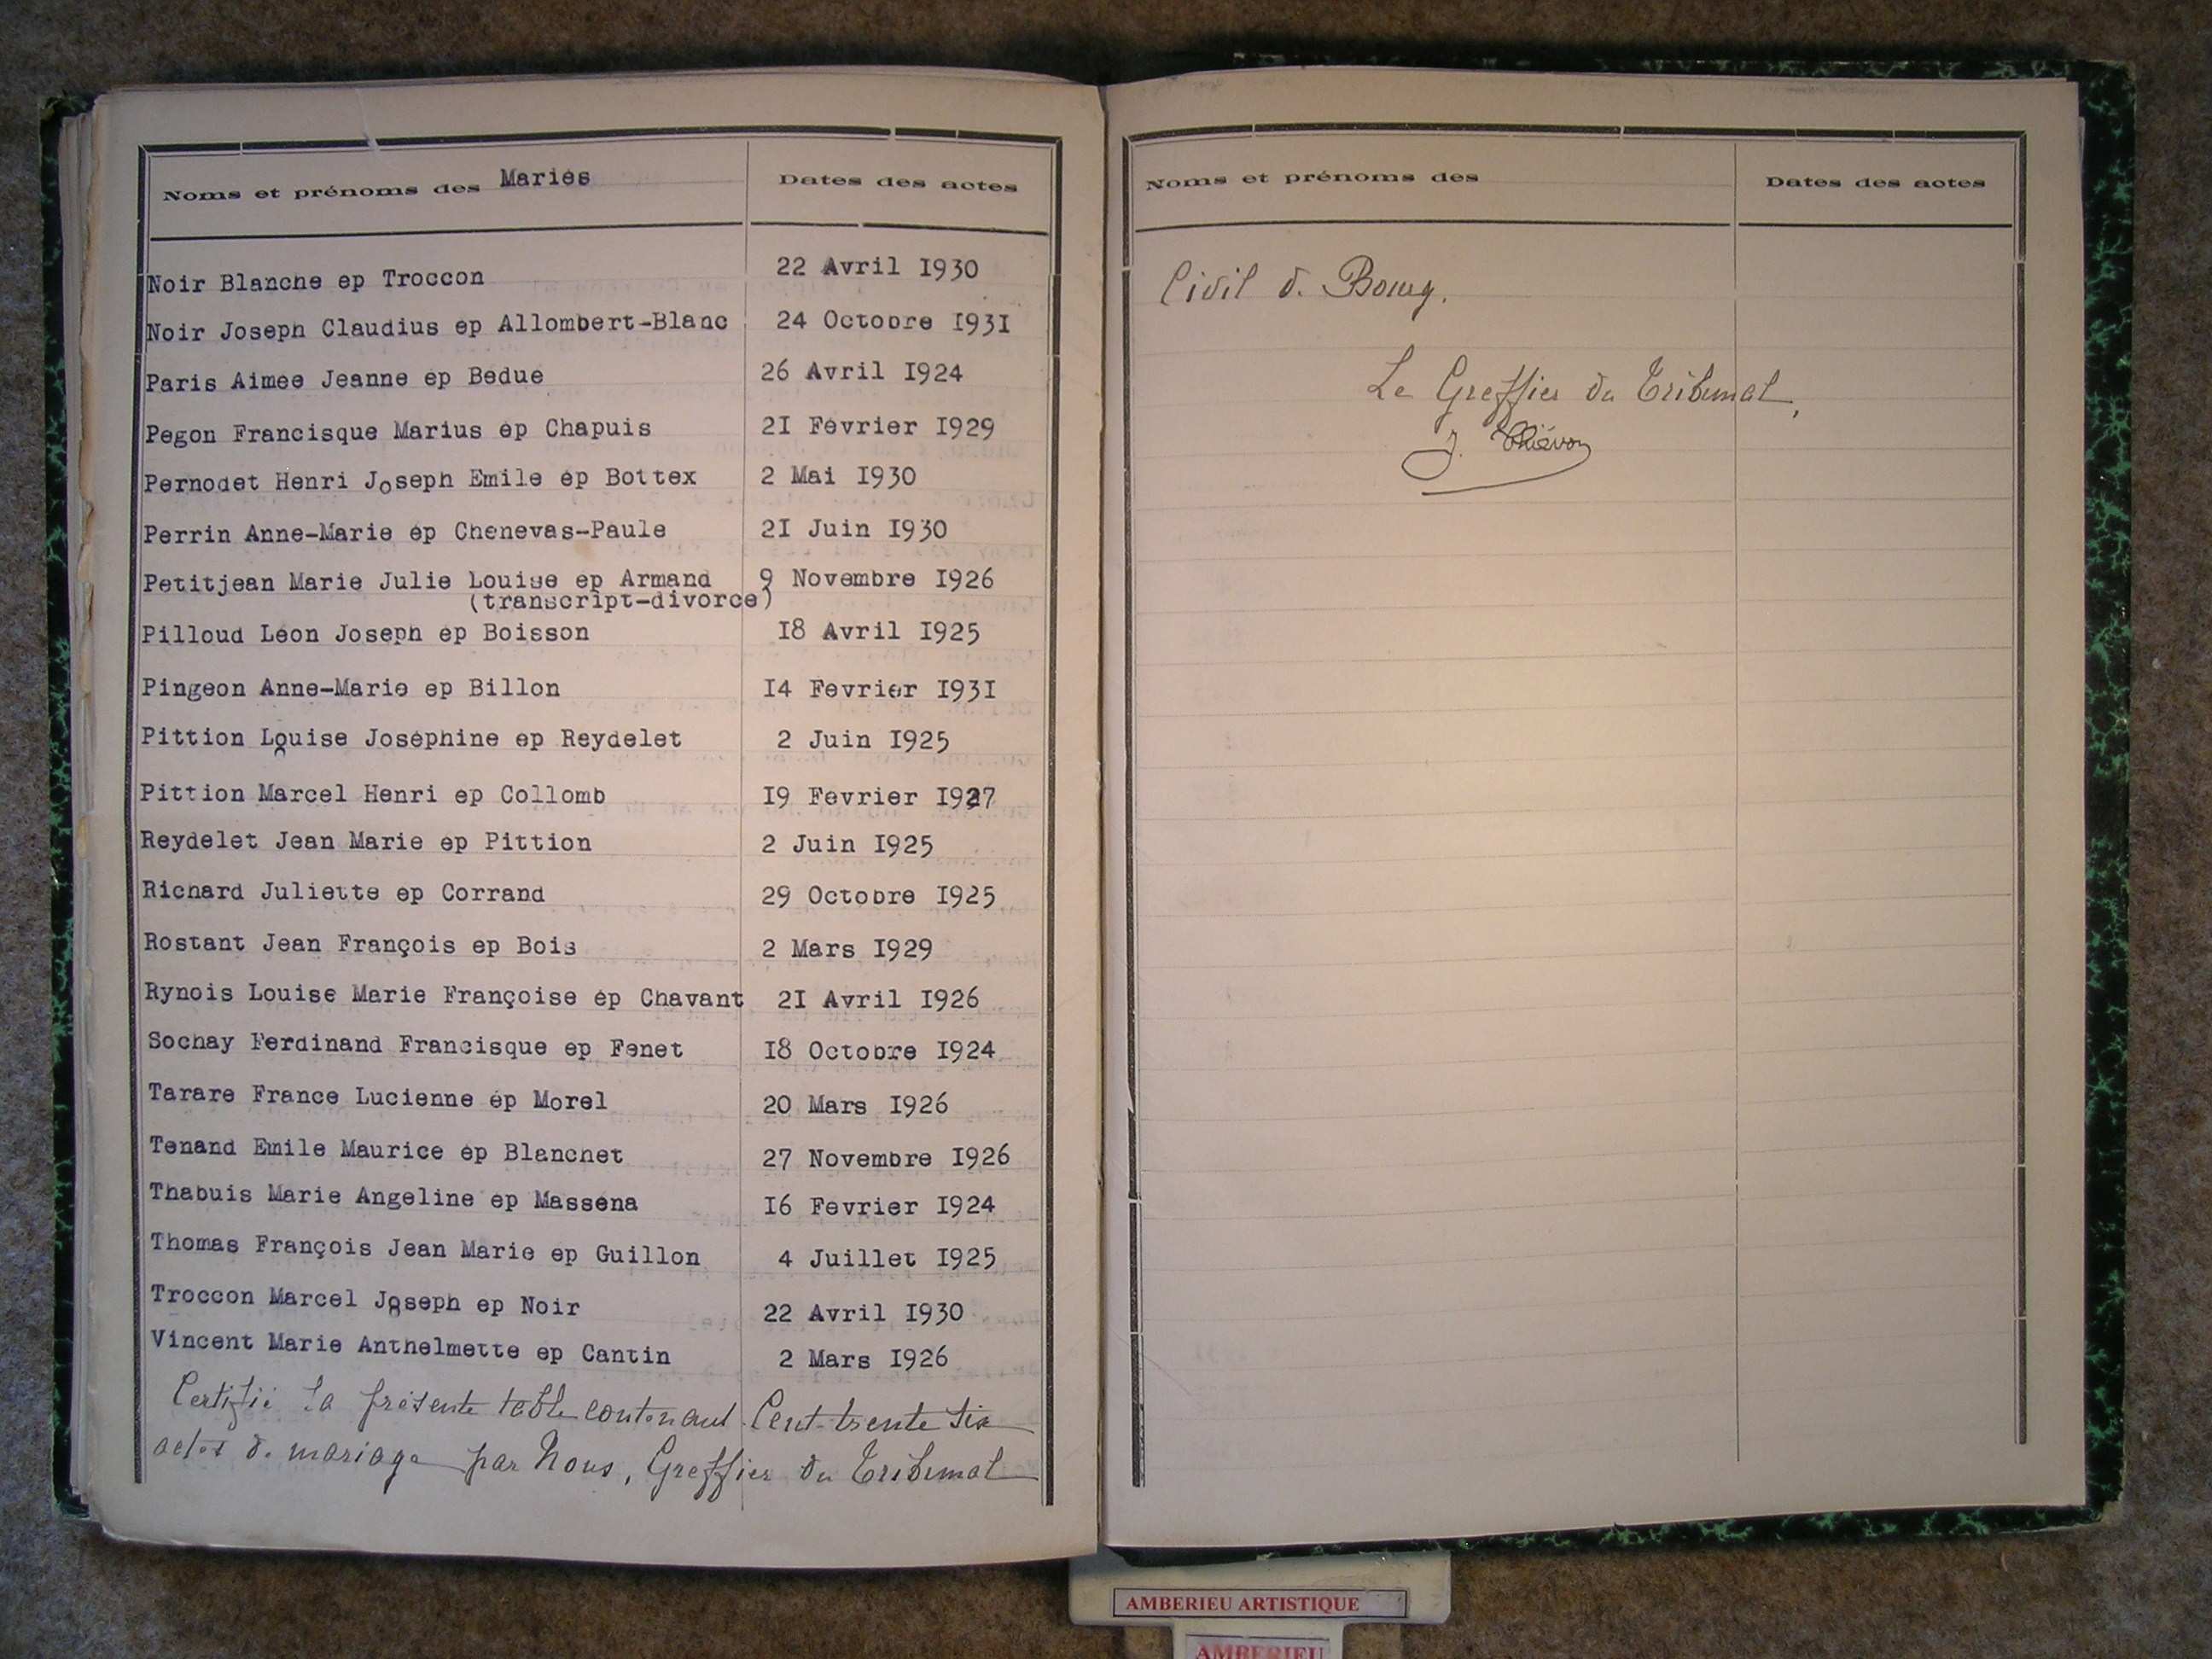 Noms et prénoms des Mariés Dates des actes
Noir Blanche ep Troccon 22 Avril I930
Noir Joseph Claudius ep Allombert-Blanc 24 Octobre I93I
Paris Aimee Jeanne ep Bedue 26 Avril I924
Pegon Francisque Marius ep Chapuis 2I Fevrier I929
Pernodet Henri Joseph Emile ep Bottex 2 Mai I930
Perrin Anne-Marie ep Chenevas-Paule 2I Juin I930
Petitjean Marie Julie Louise ep Armand 9 Novembre I926
(transcript-divorce)
Pilloud Leon Joseph ep Boisson I8 Avril I925
Pingeon Anne-Marie ep Billon I4 Fevrier I93I
Pittion Louise Josephine ep Reydelet 2 Juin I925
Pittion Marcel Henri ep Collomb I9 Fevrier I927
Reydelet Jean Marie ep Pittion 2 Juin I925
Richard Juliette ep Corrand 29 Octobre I925
Rostant Jean François ep Bois 2 Mars I929
Rynois Louise Marie Françoise ep Chavant 2I Avril I926
Sochay Ferdinand Francisque ep Fenet I8 Octobre I924
Tarare France Lucienne ep Morel 20 Mars I926
Tenand Emile Maurice ep Blanchet 27 Novembre I926
Thabuis Marie Angeline ep Massena I6 Fevrier I924
Thomas François Jean Marie ep Guillon 4 Juillet I925
Troccon Marcel Joseph ep Noir 22 Avril I930
Vincent Marie Anthelmette ep Cantin 2 Mars I926
Certifié la présente table contenant Cent-trente six
actes de mariage par Nous, Greffier du Tribunal
Noms et prénoms des Dates des actes
Civil de Bourg.
Le Greffier du Tribunal,
J.
AMBERIEU ARTISTIQUE
AMBERIEU